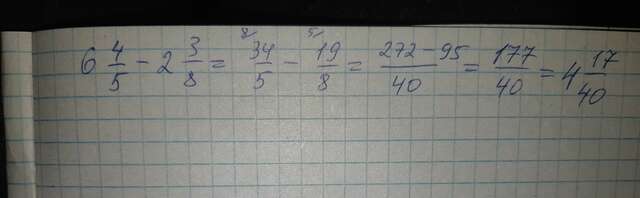 6 4/5 - 2 3/8 = 8/ 34/5 - 5/ 19/8 = 272-95/40 = 177/40 = 4 17/40